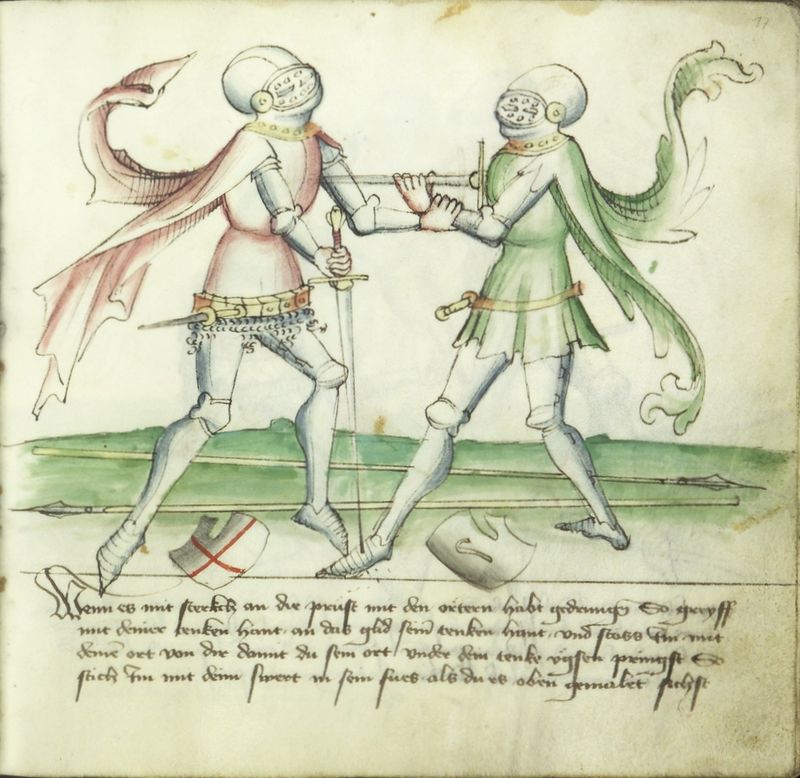 17
Wenn es mit sterkch an die prust mit den ortern habt gedrungen So greyff
mit deiner tenken hant an das glid seiner tenken hant und stoss Im mit
deinem ort von dir damit du sein ort under dein tenke ügsen pringst So
stich Im mit deim swert in sein fues als du es oben gemalet sichst